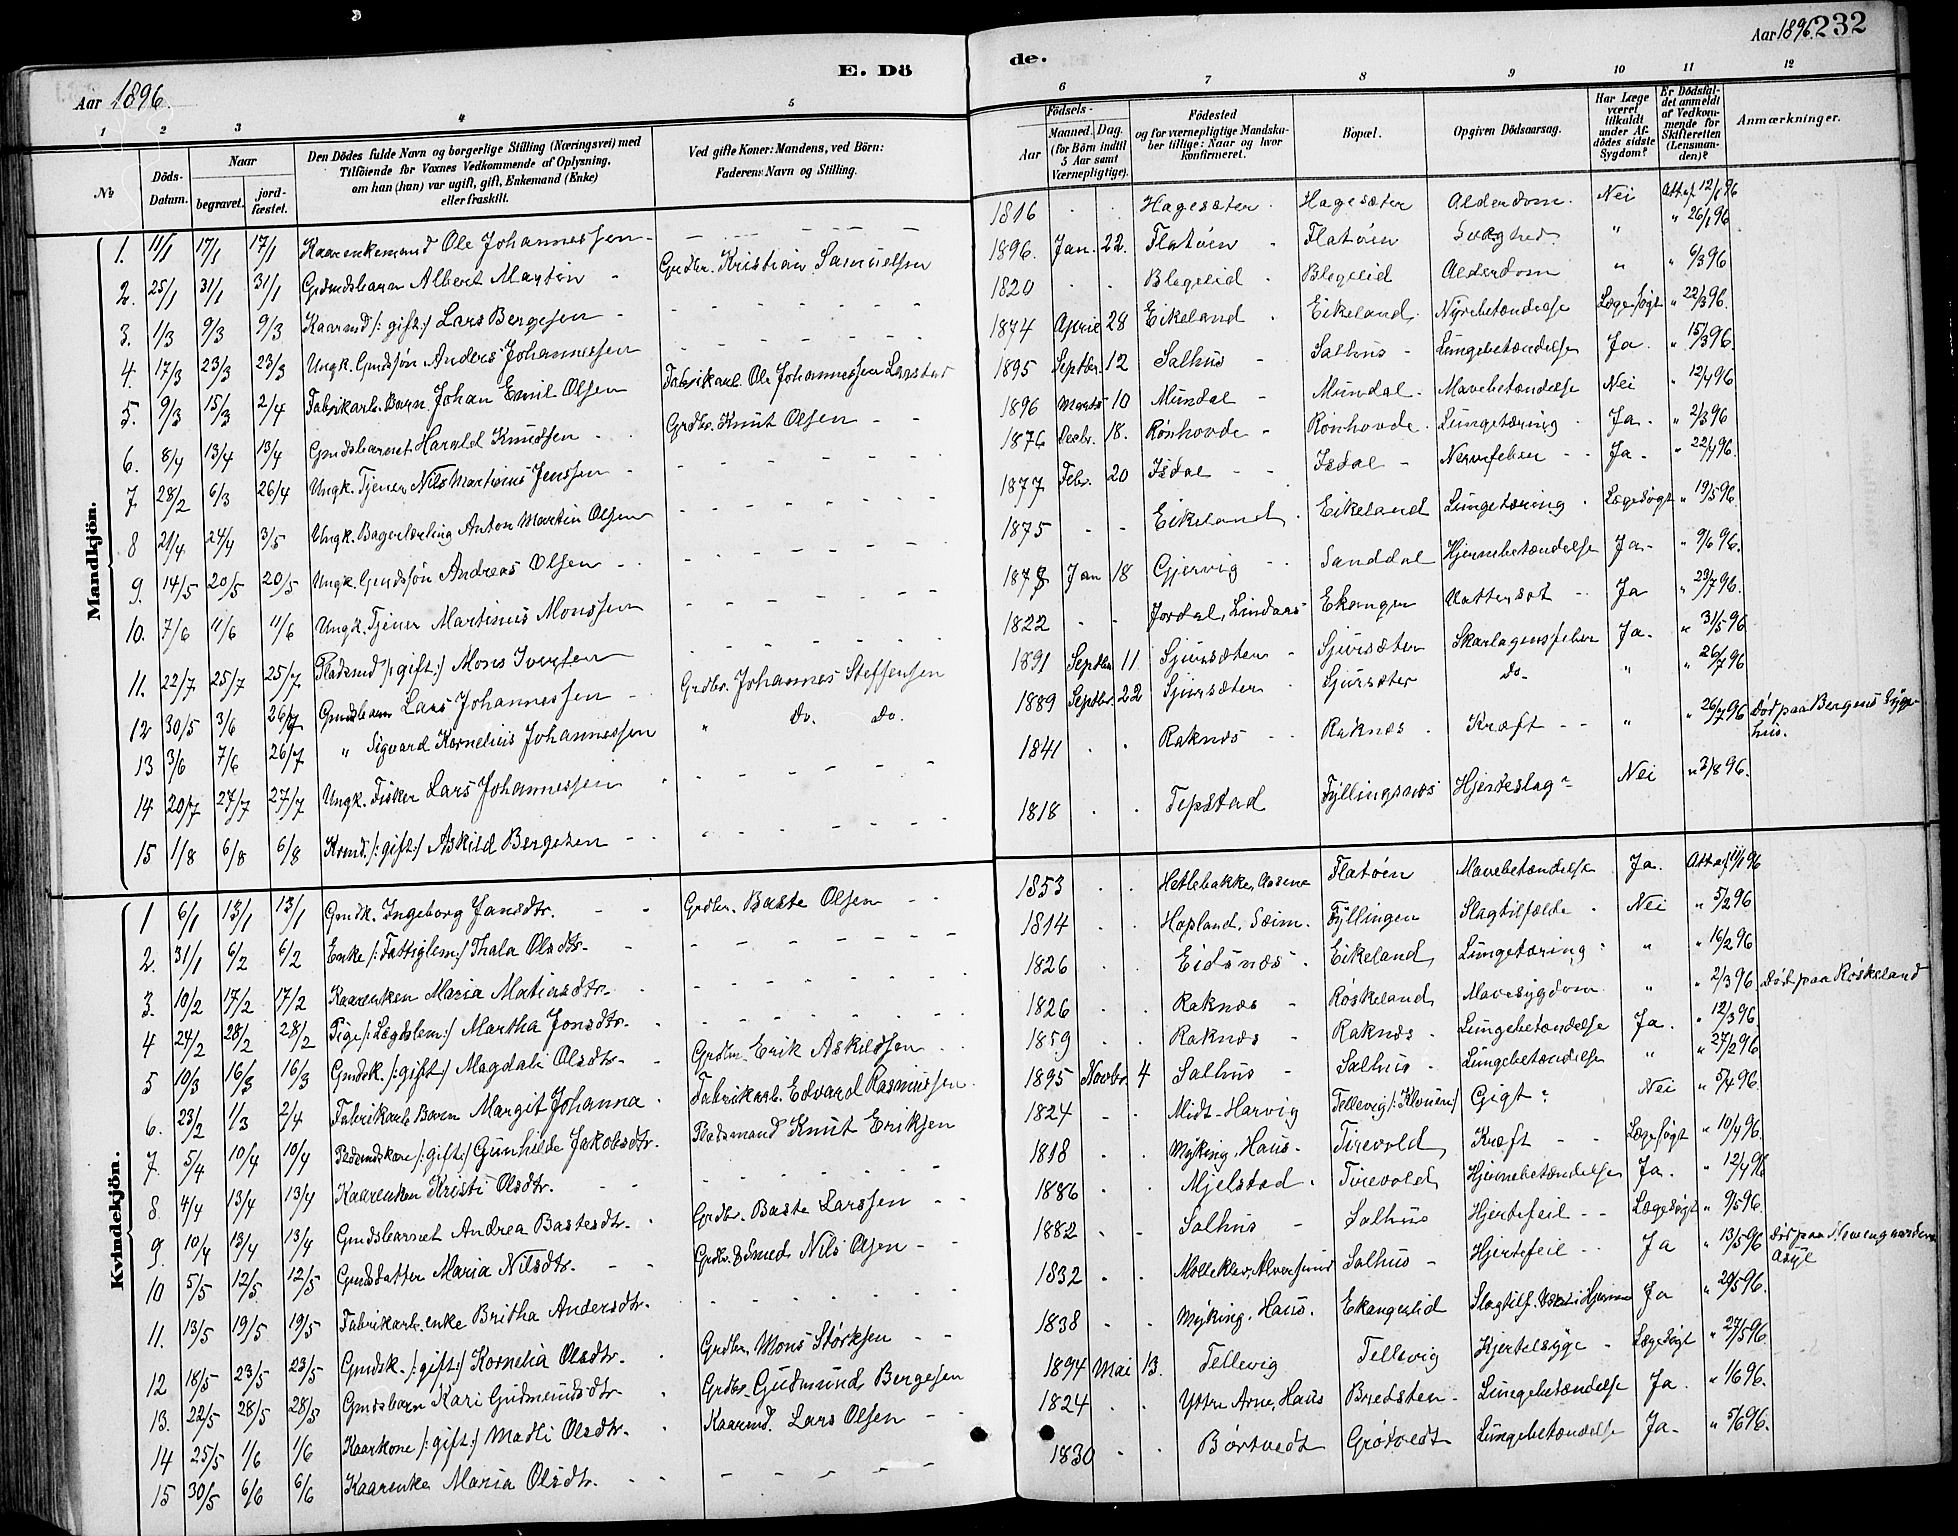 Aar 1896.
E. Dö
de.
Aar 1896. 232
1 2 3 4 5 6 7 8 9 10 11 12
No
Döds-Datum.
Naar
begravet.
jord-fæstet.
Den Dödes fulde Navn og borgerlige Stilling (Næringsvei) med
Tilföiende for Voxnes Vedkommende af Oplysning,
om han (hun) var ugift, gift, Enkemand (Enke)
eller fraskilt.
Ved gifte Koner: Mandens, ved Börn:
Faderens Navn og Stilling.
Födsels-
Aar
Maaned. Dag.
(for Börn indtil
5 Aar samt
Værnepligtige).
Födested
og for værnepligtige Mandska-
ber tillige: Naar og hvor
konfirmeret.
Bopæl.
Opgiven Dödsaarsag.
Har Læge
været
tilkaldt
under Af-
dödes sidste
Sygdom?
Er Dödsfal-
det anmeldt
af Vedkom-
mende for
Skifteretten
(Lensman-
den)?
Anmærkninger.
Mandkjön.
1. 11/1 17/1 17/1 Kaarenkemand Ole Johannessen 1816 Hagesæter Hagesæter Alderdom. Nei Attest 12/1 96
2. 25/1 31/1 31/1 Grdmdsbarn Albert Martin Grdbr. Kristian Samuelsen 1896. Jan. 22. Flatöen Flatöen Svaghed. " " 26/1 96
3. 1/3 9/3 9/3 Kaarmd /: gift :/ Lars Bergesen 1820 Blegelid Blegelid Alderdom " " 6/3 96
4. 17/3 23/3 23/3 Ungk. Gmdssön Anders Johannessen 1874 April 28 Eikeland Eikeland. Nyrebetændelse Lægesögt " 22/3 96.
5. 9/3 15/3 2/4 Fabrikarb. Barn Johan Emil Olsen Fabrikarb. Ole Johannessen 1895 Septbr. 12 Salhus Salhus Lungebetændelse Ja. " 15/3 96.
6. 8/4 13/4 13/4 Gmdsbarnet Harald Knudsen Grdbr. Knut Olsen 1896 Marts 10 Mundal Mundal. Mavebetændelse Nei " 12/4 96
7. 28/2 6/3 26/4 Ungk. Tjener Nils Martinus Jenssen 1876 Decbr. 18. Rönhovde Rönhovde. Lungetæring Ja. " 2/3 96
8 21/4 24/4 3/5 Ungk. Bagerlærling Anton Martin Olsen 1877 Febr. 20 Isdal Isdal Nervefeber Ja. " 22/4 96.
9. 14/5 20/5 20/5 Ungk. Gmdssön Andreas Olsen 1875 Eikeland. Eikeland Lungetæring Lægesögt " 19/5 96.
10. 7/6 11/6 11/6 Ungk. Tjener Martinus Monssen 1878 Jan 18 Gjervig Sanddal Hjernebetændelse Ja. " 9/6 96.
11. 22/7 25/7 25/7 Pladsmd /: gift :/ Mons Iversen 1822 Jordal, Lindaas Ekangen Vattersot Ja " 23/7 96.
12 30/5 3/6 26/7 Gmdsbarn Lars Johannessen Grdbr. Johannes Steffensen 1891 Septbr 11. Sjursæter Sjursæter Skarlagensfeber Ja. " 31/5 96
13 3/6 7/6 26/7 " Sigvard Kornelius Johannessen " Do. Do. 1889 Septbr. 22 Sjursæter Sjursæter do. " " 26/7 96
14 20/7 27/7 27/7 Ungk. Fisker Lars Johannessen 1841 Raknæs Raknæs. Kræft " " 26/7 96 Död paa Bergens Syge-
hus.
15 1/8 6/8 6/8 Kmd. /: gift :/ Askild Bergesen 1818 Tepstad Fyllingsnæs Hjerteslag Nei " 3/8 96.
Kvindekjön.
1 6/1 13/1 13/1 Gmdk. Ingeborg Jansdtr. Grdbr. Baste Olsen 1853 Hetlebakke, Aasene Flatöen Mavebetændelse Ja. Attest 11/1 96
2. 31/1 6/2 6/2 Enke /: Fattiglem :/ Thala Olsdtr. 1814 Hopland, Seim. Fyllingen Slagtilfælde Nei " 5/2 96
3. 10/2 17/2 17/2 Kaarenken Maria Matiasdtr. 1826 Eidsnæs. Eikeland. Lungetæring " " 16/2 96
4 24/2 28/2 28/2 Pige /: Lægdslem :/ Martha Jonsdtr. 1826 Raknæs Röskeland. Mavesygdom " " 2/3 96 Död paa Röskeland
5 10/3 16/3 16/3 Gmdsk. /: gift :/ Magdali Olsdtr. Grdbr. Erik Askildsen 1859 Raknæs Raknæs. Lungebetændelse Ja. " 12/3 96.
6. 23/2 1/3 2/4 Fabrikarb. Barn Margit Johanna Fabrikarb. Edvard Rasmussen 1895 Novbr. 4 Salhus Salhus. Lungebetændelse " " 27/2 96
7. 5/4 10/4 10/4 Pladsmdskone /: gift :/ Gunhilde Jakobsdtr. Pladsmand Knut Eriksen 1824 Midt-Harvig Tellevig Gigt Nei " 5/4 96.
8. 4/4 13/4 13/4 Kaarenken Kristi Olsdtr. 1818 Myking, Haus. Tirevold Kræft Lægesögt " 10/4 96.
9. 10/4 13/4 13/4 Gmdsbarnet Andrea Bastesdtr. Grdbr. Baste Larssen 1886 Mjelstad. Tirevold Hjernebetændelse Ja. " 12/4 96
10 5/5 12/5. 12/5 Gmdsdatter Maria Nilsdtr. Grdbr. & Smed Nils Olsen 1882 Salhus Salhus Hjertefeil Lægesögt " 9/5 96.
11. 13/5 19/5 19/5 Fabrikarb. enke Britha Andersdtr. 1832 Mölleklev, Alversund Salhus Hjertefeil Ja " 13/5 96
12 18/5 23/5 23/5 Gmdsk. /: gift :/ Kornelia Olsdtr. Grdbr. Mons Störksen 1838 Myking, Haus. Ekangerlid Slagtilf. Ja " 20/5 96.
13. 22/5 28/5 28/5 Gmdsbarn Kari Gudmundsdtr Grdbr. Gudmund Bergesen 1894 Mai 13. Tellevig Tellevig Kjertelsyge Lægesögt " 27/5 96.
14 25/5 1/6 1/6 Kaarkone /: gift :/ Madli Olsdtr. Kaarmd. Lars Olsen 1824 Yttre Arne, Haus Bredsten Lungebetændelse Ja. " 1/6 96.
15 30/5 6/6 6/6 Kaarenke Maria Olsdtr. 1830 Börtvedt Grötvedt Lungebetændelse Ja. " 5/6 96.